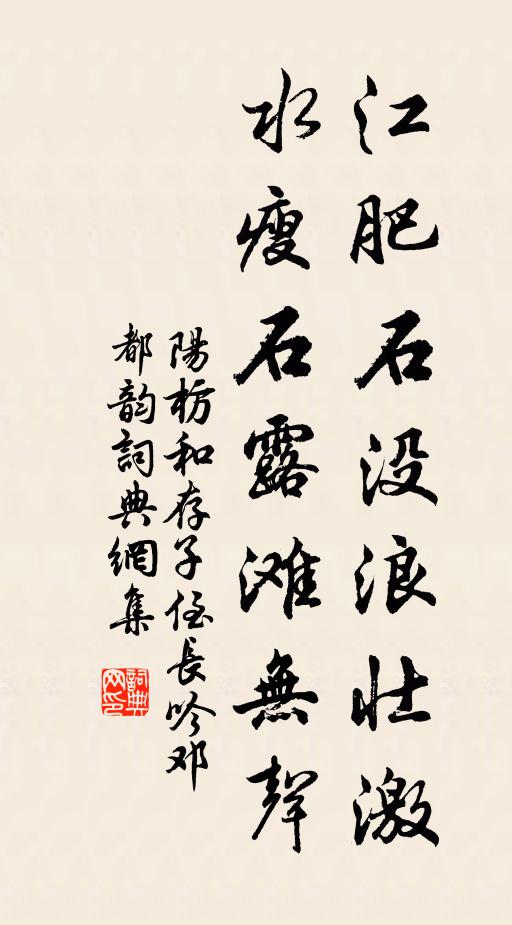 江肥石没浪壮激
水瘦石露滩無聲
陽枋和存子侄長吟邓
都韵詞典網集
詞典
网印